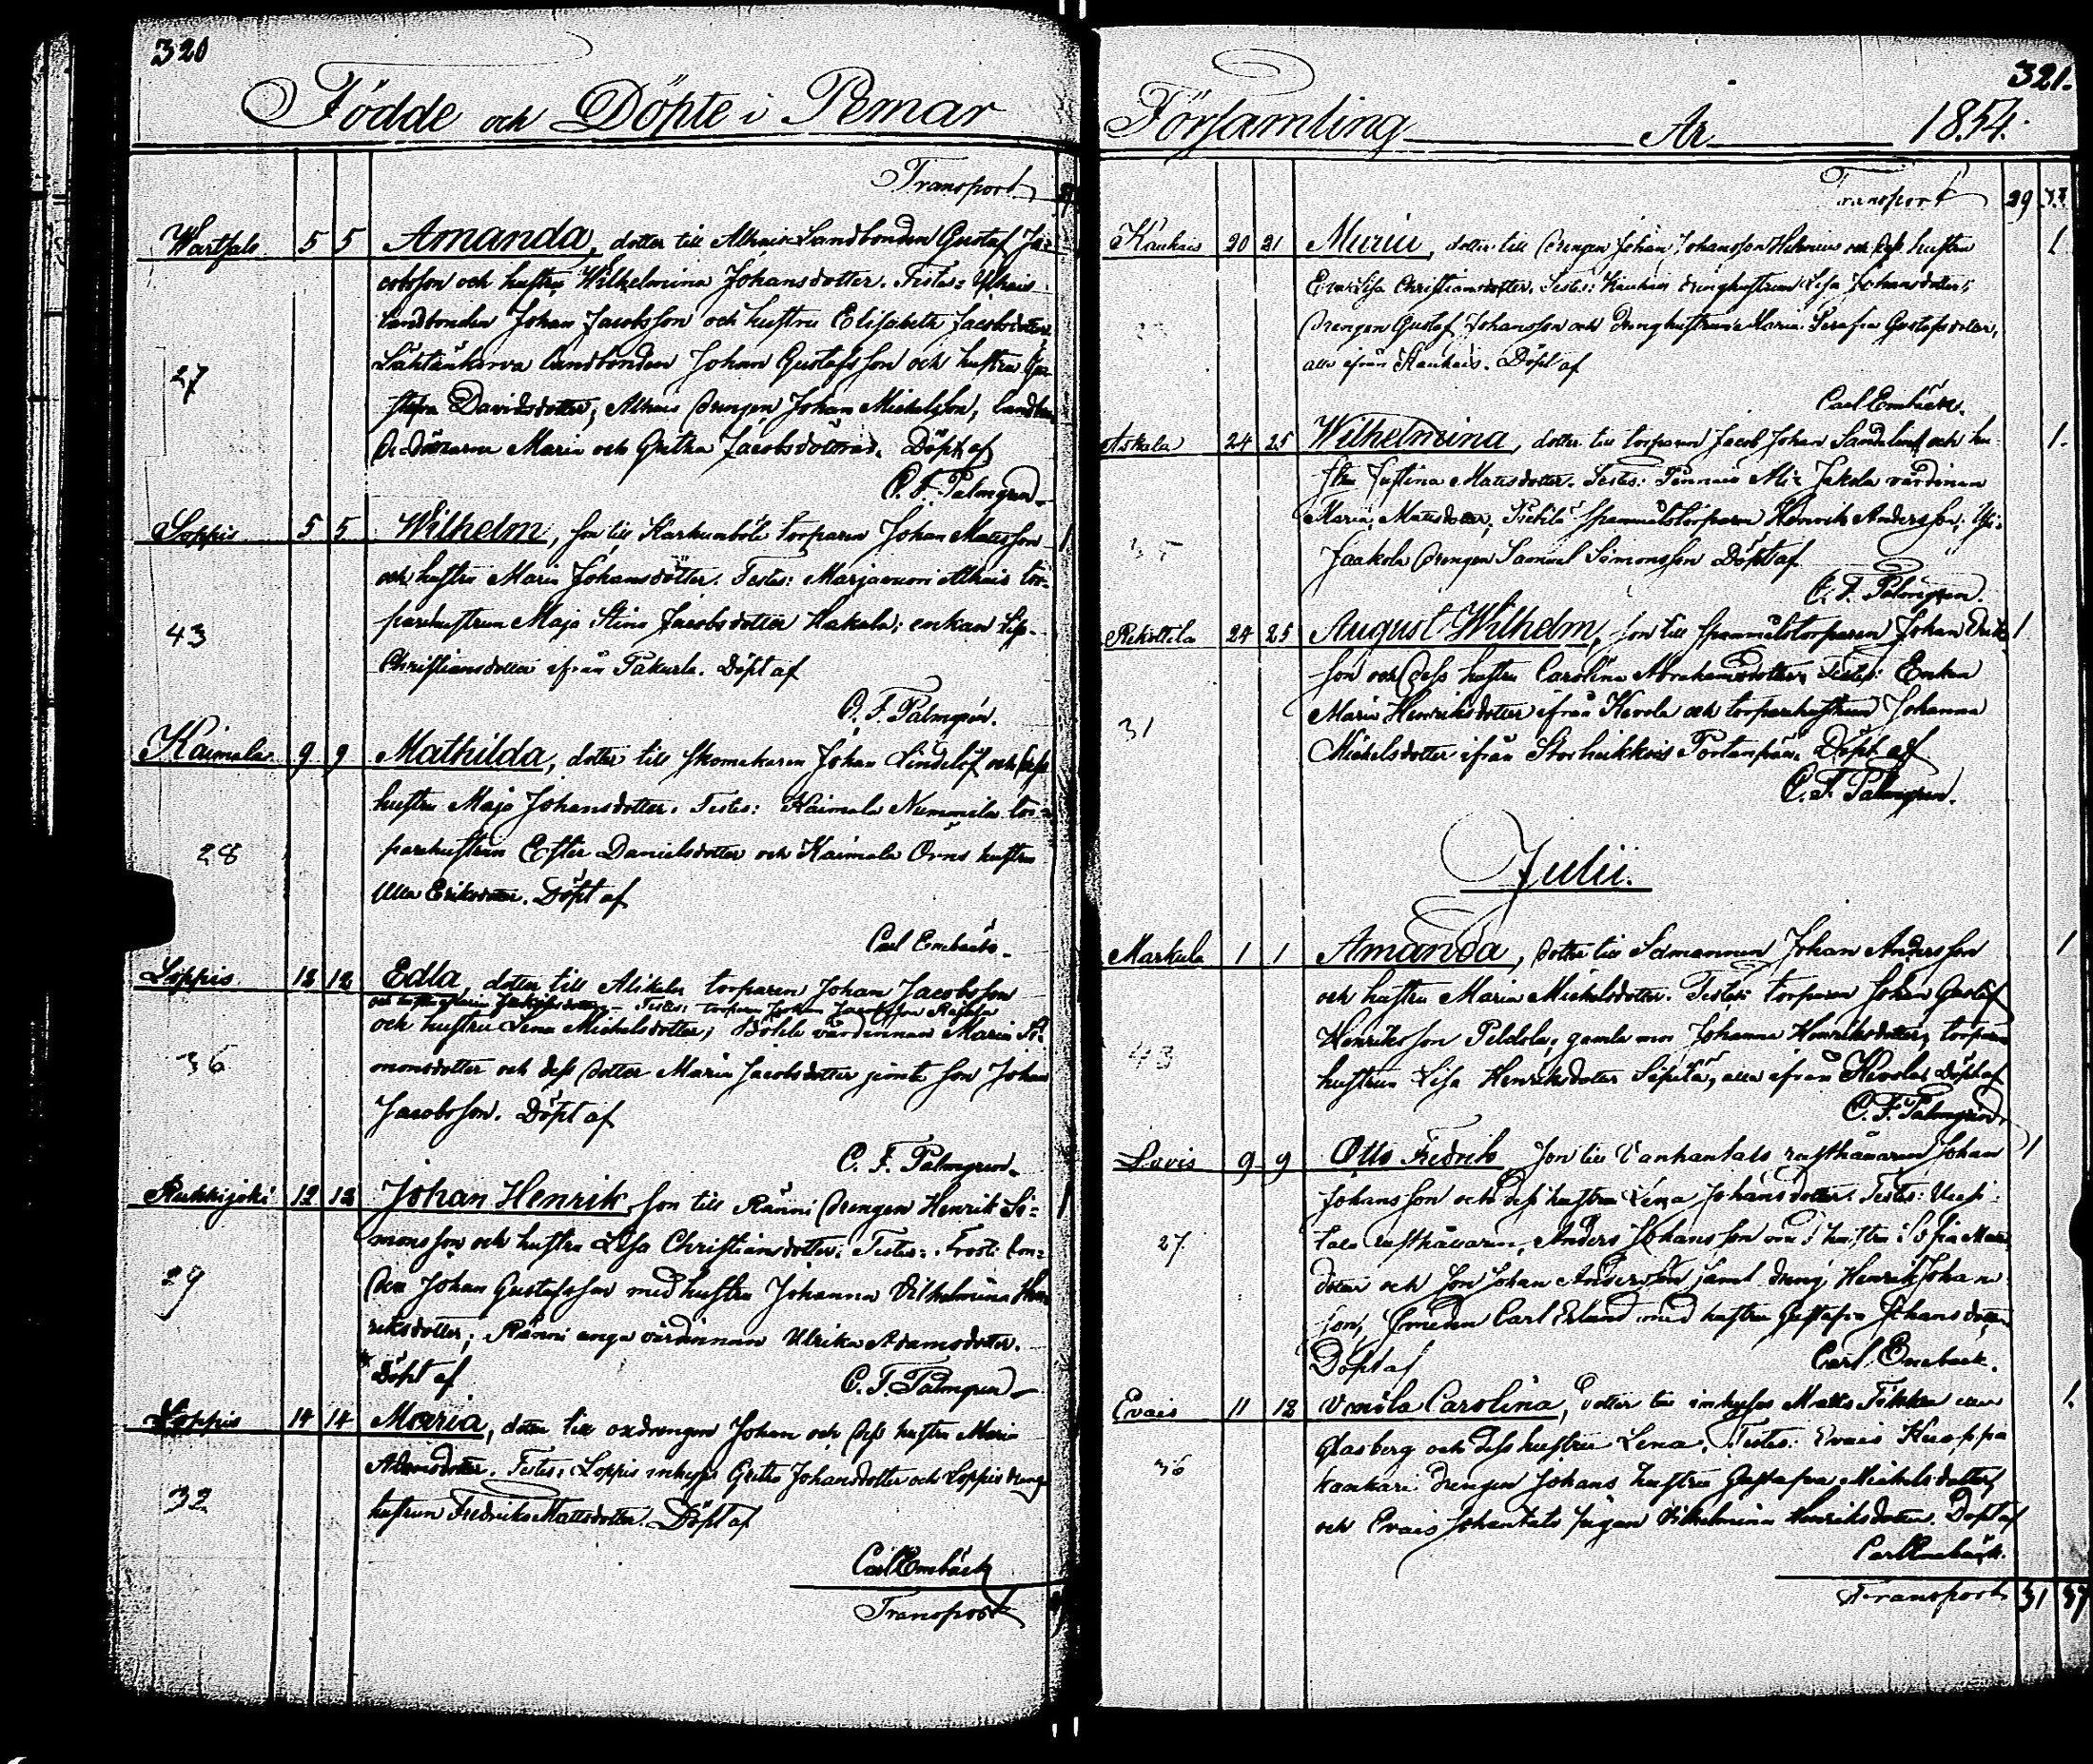 320
Födde och Döpte i Pemar
Transport
Wartsala 5 5 Amanda, dotter till Alhais Landbonden Gustaf Ja-
cobsson och hustru Wilhelmina Johansdotter. Testes: Alhais
landbonden Johan Jacobsson och hustru Elisabeth Jacobsdotter,
27 landbonden Johan Gustafsson och hustru Gu-
stafva Davidsdotter; Alhais drengen Johan Michelsson,
Maria och Gretha Jacobsdöttrar. Döpt af
C. F. Palmgren
Loppis 5 5 Wilhelm, son till Karhunböle torparen Johan Matsson 1
och hustru Maria Johansdotter. Testes: Marjavuori Alhais tor-
43 parehustrun Maja Stina Jacobsdotter Hakala; enkan
Christiansdotter ifrån Pakurla. Döpt af
C. F. Palmgren.
Kaimala 9 9 Mathilda, dotter till skomakaren Johan Lindelöf och dess
hustru Maja Johansdotter. Testes: Kaimala Nummila tor-
28 parehustrun Ester Danielsdotter och Kaimala Örns hustru
Ulla Eriksdotter. Döpt af
Carl Enebäck.
Loppis 12 12 Edla, dotter till Alikulu torparen Johan Jacobsson
och hustru Maria Testes: torparen Johan Jacobsson
och hustru Lena Michelsdotter; Böhle värdinnan Maria Si-
36 monsdotter och dess dotter Maria Jacobsdotter jemte son Johan
Jacobsson. Döpt af
C. F. Palmgren.
Rukkijoki 12 12 Johan Henrik, son till Ränni drengen Henrik Si- 1
monsson och hustru Lisa Christiansdotter. Testes: Trosti bon-
29 den Johan Gustafsson med hustru Johanna Vilhelmina Hen-
riksdotter; Ränni unga värdinnan Ulrika Adamsdotter.
Döpt af C. F. Palmgren
Loppis 14 14 Maria, dotter till oxdrengen Johan och dess hustru Maria
Adamsdotter. Testes: Loppis inhyses Greta Johansdotter och Loppis drenge
32 hustrun Fredrika Mattsdotter. Döpt af
Carl Enebäck
Transport
321.
Församling År 1854.
Transport 29 33
Kauhais 20 21 Maria, dotter till drengen Johan Johansson och dess hustru 1
Eva Lisa Christiansdotter. Testes: Kauhais drenghustrun Lisa Johansdotter,
drengen Gustaf Johansson och drenghustrun Maria Serafia Gustafsdotter,
alla ifrån Kauhais. Döpt af
Carl Enebäck.
Askala 24 25 Wilhelmina, dotter till torparen Jacob Johan Sandelin och hu- 1.
stru Justina Matsdotter. Testes: Jakola värdinnan
Maria Mattsdotter, spannmålstorparen Henrik Andersson, Yli-
35 Jaakola drengen Samuel Simonsson Döpt af
C. F. Palmgren.
Rekottila 24 25 August Wilhelm, son till spannmålstorparen Johan Eriks- 1
son och dess hustru Carolina Abrahamsdotter. Testes: Enkan
31 Maria Henriksdotter ifrån Kevola och torparehustrun Johanna
Michelsdotter ifrån Storheikkois Portanpää. Döpt af
C. F. Palmgren.
Julii.
Markula 1 1 Amanda, dotter till Sämannen Johan Andersson 1
och hustru Maria Michelsdotter. Testes: torparen Johan Gustaf
Henriksson Peldola, gamla mor Johanna Henriksdotter, torpare
43 hustrun Lisa Henriksdotter Sipilä, alla ifrån Kevola. Döpt af
C. F. Palmgren
Lovis 9 9 Otto Fredrik, son till Vanhantalo rusthållaren Johan 1
Johansson och dess hustru Lena Johansdotter. Testes: Uusi-
27 talo rusthållaren, Anders Johansson med hustru Sofia Matts-
dotter och son Johan Andersson samt dreng Henrik Johan-
son, smeden Carl Erlund med hustru Gustafva Johansdotter
Döpt af Carl Enebäck.
Evais 11 12 Carolina, dotter till inhyses Matts 1.
Glasberg och dess hustru Lena. Testes: Evais
36 drengen Johans hustru Gustafva Michelsdotter
och Evais Johantalo pigan Vilhelmina Henriksdotter. Döpt af
Carl Enebäck.
Transport 31 37